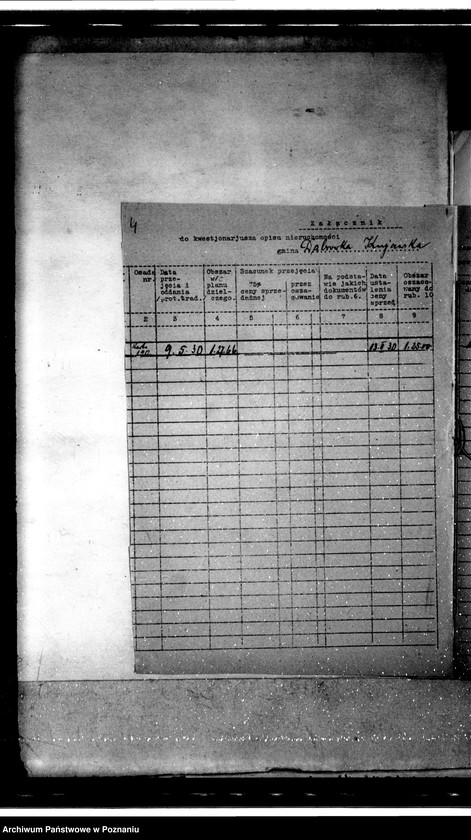 4
Załącznik
do kwestjonarjusza opisu nieruchomości
gmina Dąbrówka Kujawska
Osada nr.
Data prze- jęcia i oddania /prot.trad./
Obszar w/g planu dziel- czego.
Szacunek przejęcia
75% ceny sprze- dażnej
przez osza- cowanie
Na podsta- wie jakich dokumentów do rub.6.
Data usta- lenia ceny sprzed.
Obszar oszaco- wany do rub. 10
2 3 4 5 6 7 8 9
9.5.30 1.27.66
Archiwum Państwowe w Poznaniu